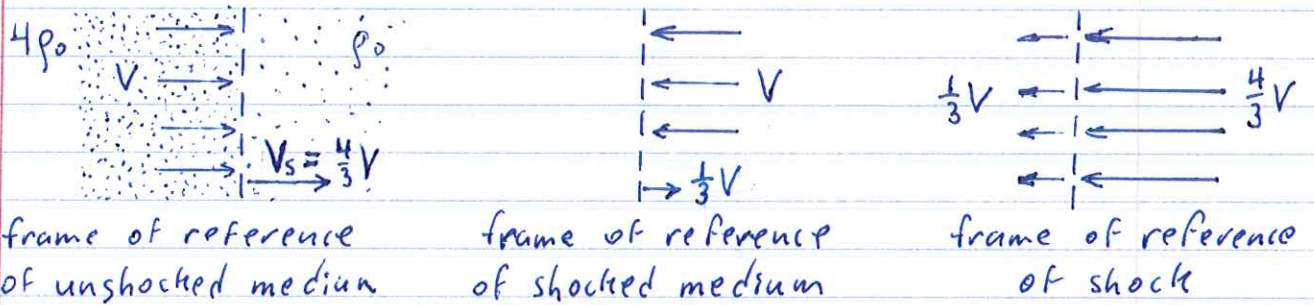 4ρ₀ ρ₀
V
V_s = 4/3 V
V
1/3 V
1/3 V
4/3 V
frame of reference
of unshocked medium
frame of reference
of shocked medium
frame of reference
of shock